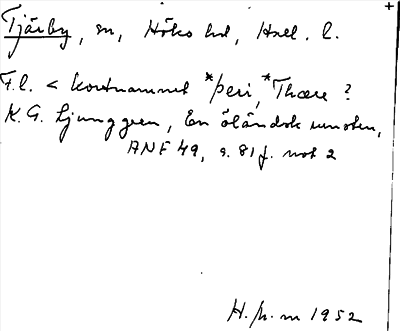 Tjärby, sn, Höks hd, Hall. l.
F.l. < kortnamnet *þeri, *Thære ?
K. G. Ljunggren, En öländsk runsten,
ANF 49, s. 81 f. not 2
H. 1952